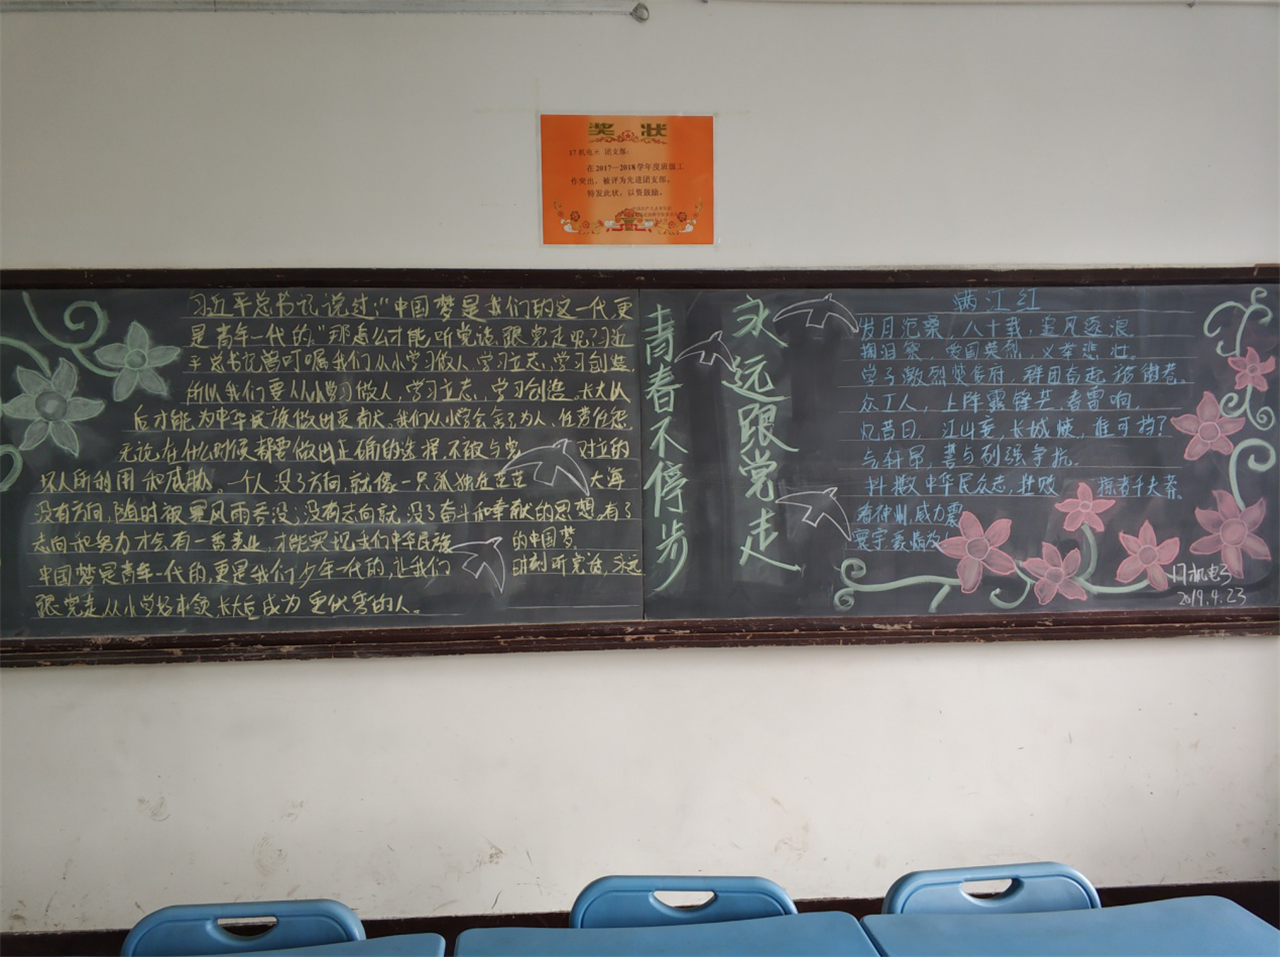 奖 状
17机电 团支部：
在2017—2018学年度班级工
作突出，被评为先进团支部。
特发此状，以资鼓励。
习近平总书记说过："中国梦是我们的这一代更
是青年一代的。"那怎么才能听党话跟党走呢？习近
平总书记曾叮嘱我们从小学习做人，学习立志，学习创造。
所以我们要从小学习做人，学习立志，学习创造。长大以
后才能为中华民族做出更有大。我们从小学会 为人，任劳任怨
无论在什么时候都要做出正确的选择，不被与党 对立的
坏人所利用和威胁。一个人没了方向，就像一只孤独在茫茫 大海
没有方向，随时被暴风雨吞没，没有志向就没了奋斗和奉献的思想。有了
志向和努力才会有一番事业，才能实现我们中华民族 的中国梦
中国梦是青年一代的，更是我们少年一代的，让我们 时刻听党话，永远
跟党走从小学好本领长大后成为更优秀的人。
青春不停步
永远跟党走
满江红
岁月沧桑，八十载，追风逐浪
掬泪祭，爱国英烈，义举悲壮。
学子激烈焚贼府，群团奋起
众工人，上阵露锋芒，春雷响，
忆昔日，江山 ，长城 ，谁可挡？
气轩昂，誓与列强争抗。
抖擞中华民众志， 掠者千夫
看神州，威力震
寰宇豪情放！
17机电
2019.4.23